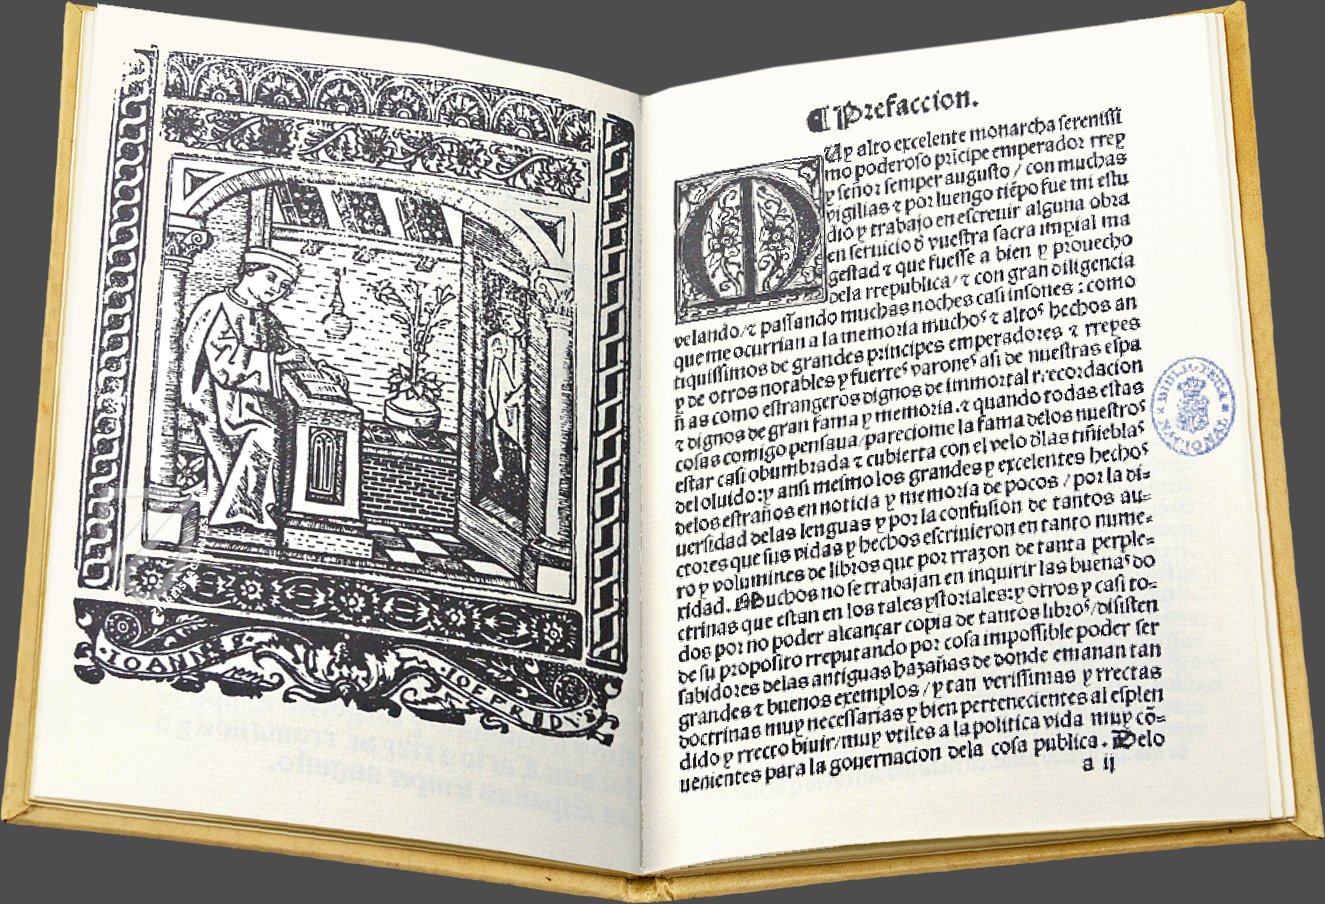 IOANNES
IOFFREDVS
¶ Prefaccion.
MUy alto excelente monarcha sereniſſi
mo poderoſo pricipe emperador rrey
y señor ſemper auguſto / con muchas
vigilias ⁊ por luengo tiẽpo fue mi eſtu
dio y trabajo en eſcreuir alguna obra
en ſeruicio d̓ vueſtra ſacra imp̱ial ma
geſtad ⁊ que fueſſe a bien y prouecho
dela rrepublica / ⁊ con gran diligencia
velando / ⁊ paſſando muchas noches caſi inſones : como
que me ocurrian a la memoria muchos ⁊ altos hechos an
tiquiſſimos de grandes principes emperadores ⁊ rreyes
y de otros notables y fuertes varones aſi de nueſtras eſpa
ñas como eſtrangeros dignos de immortal rrecordacion
⁊ dignos de gran fama y memoria. ⁊ quando todas eſtas
coſas comigo penſaua / pareciome la fama delos nueſtros
eſtar caſi obumbrada ⁊ cubierta con el velo d̓las tiñieblas
del oluido : y anſi meſmo los grandes y excelentes hechos
delos eſtraños en noticia y memoria de pocos / por la di-
uerſidad delas lenguas y por la confuſion de tantos au-
ctores que ſus vidas y hechos eſcriuieron en tanto nume-
ro y volumines de libros que por rrazon de tanta perple-
xidad. Muchos no ſe trabajan en inquirir las buenas do
ctrinas que eſtan en los tales yſtoriales : y otros y caſi to-
dos por no poder alcançar copia de tantos libros / diſiſten
de ſu propoſito rreputando por coſa impoſſible poder ſer
ſabidores delas antiguas hazañas de donde emanan tan
grandes ⁊ buenos exemplos / y tan veriſſimas y rrectas
doctrinas muy neceſſarias y bien pertenecientes al eſplen
dido y rrecto biuir / muy vtiles a la politica vida muy cõ-
uenientes para la gouernacion dela coſa publica. Delo
a ij
BIBLIOTECA
NACIONAL